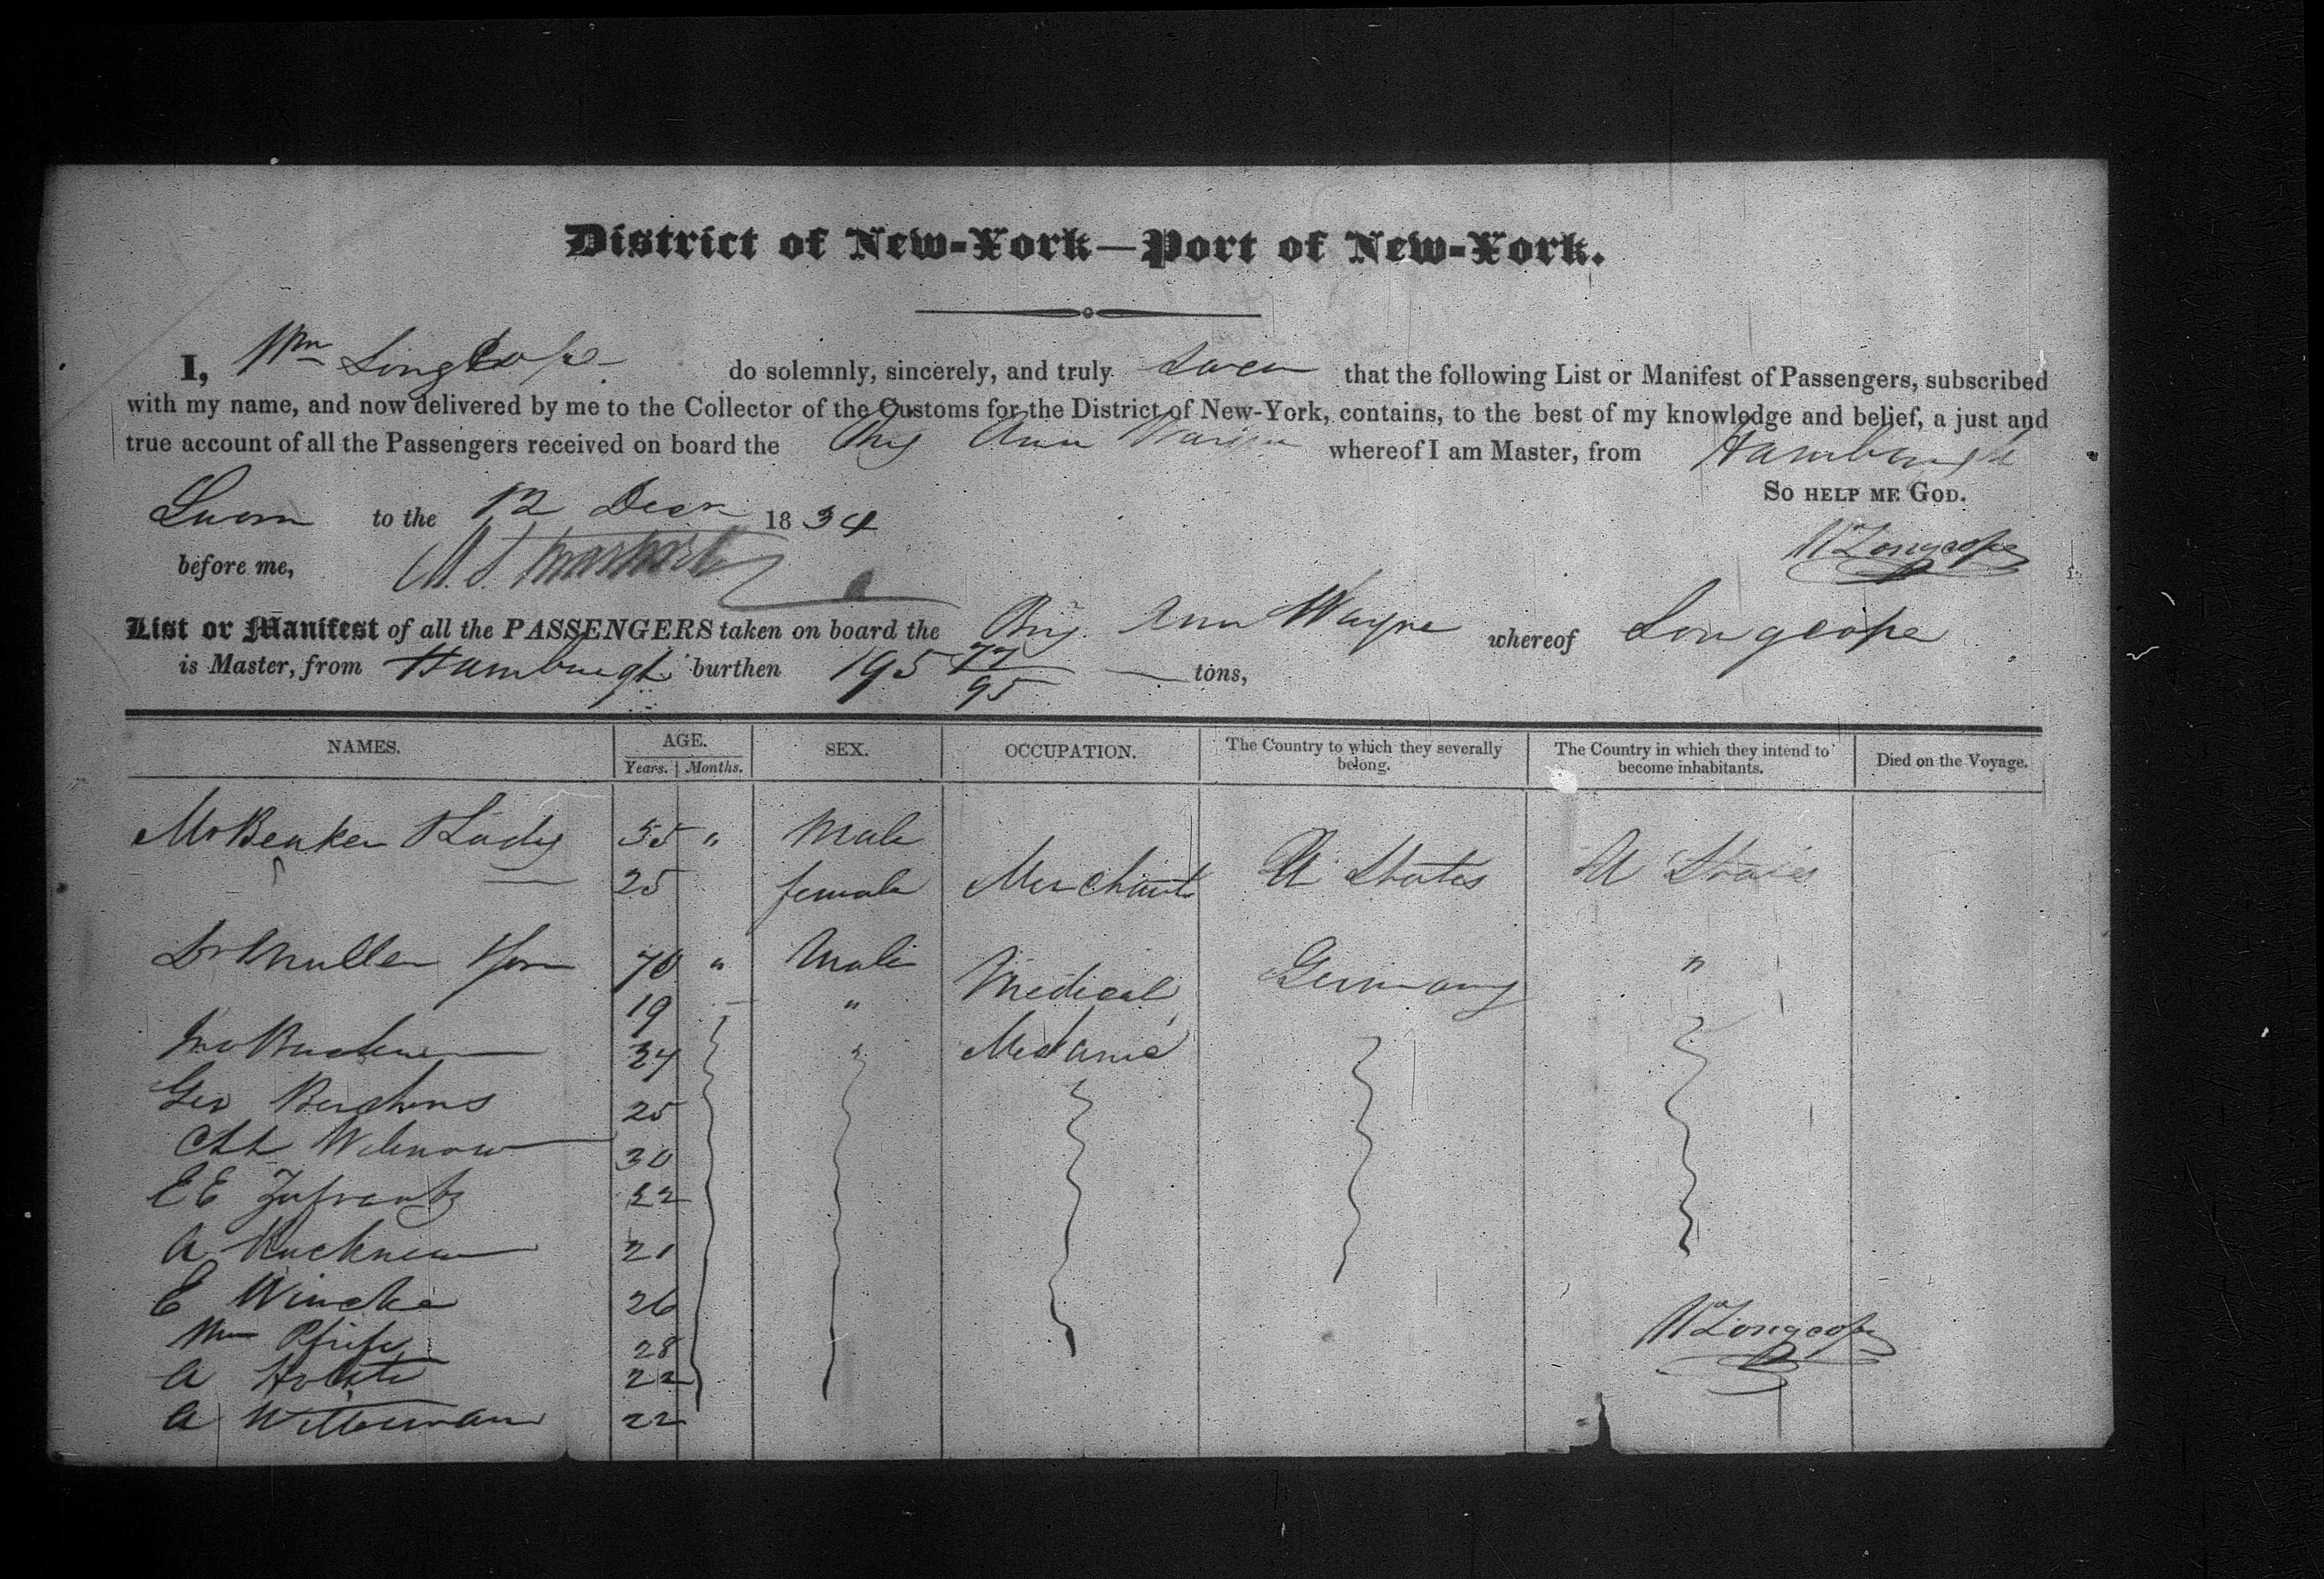 District of New-York—Port of New-York.
I, Wm Longcope do solemnly, sincerely, and truly swear that the following List or Manifest of Passengers, subscribed
with my name, and now delivered by me to the Collector of the Customs for the District of New-York, contains, to the best of my knowledge and belief, a just and
true account of all the Passengers received on board the Brig Ann Wayne whereof I am Master, from Hamburgh
So HELP ME GOD.
Sworn to the 12 Decr 1834
before me,
W Longcope
List or Manifest of all the PASSENGERS taken on board the Brig Ann Wayne whereof Longcope
is Master, from Hamburgh burthen 195 77/95 tons,
NAMES. AGE. SEX. OCCUPATION. The Country to which they severally belong. The Country in which they intend to become inhabitants. Died on the Voyage.
Years. Months.
Mr Benken & Lady 35 " Male
25 female Merchant U States U States
Dr Muller & Son 70 " Male Medical Germany "
19 "
34 Mechanic
Geo 25
30
E E 22
A 21
E Wincke 26
Wm 28
A 22
A Witterman 22
W Longcope